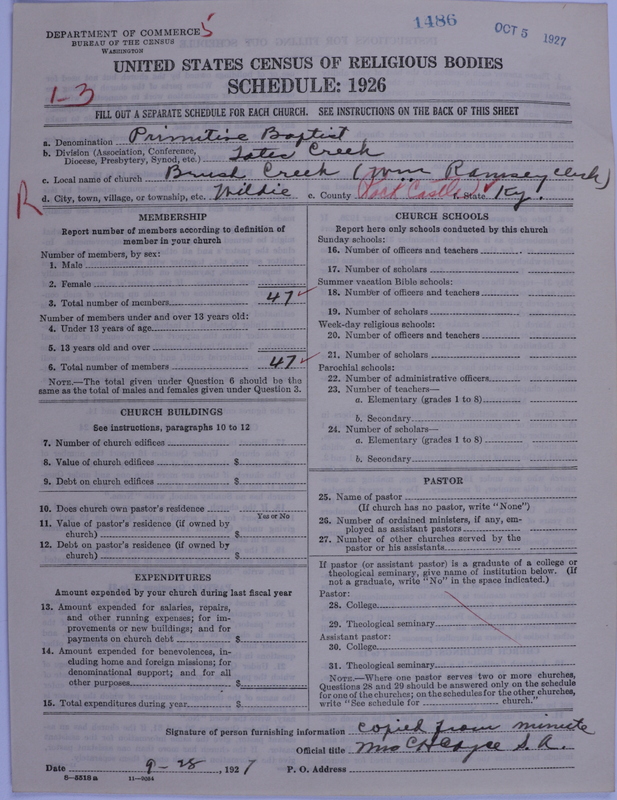 DEPARTMENT OF COMMERCE 5
BUREAU OF THE CENSUS
WASHINGTON
1486
OCT 5 1927
UNITED STATES CENSUS OF RELIGIOUS BODIES
SCHEDULE: 1926
1-3
FILL OUT A SEPARATE SCHEDULE FOR EACH CHURCH. SEE INSTRUCTIONS ON THE BACK OF THIS SHEET
a. Denomination Primitive Baptist
b. Division (Association, Conference, Diocese, Presbytery, Synod, etc.) Tates Creek
c. Local name of church Brush Creek (Wm Ramsey clerk)
R
d. City, town, village, or township, etc. Wildie e. County Rock Castle f. State Ky.
MEMBERSHIP
Report number of members according to definition of
member in your church
Number of members, by sex:
1. Male
2. Female
3. Total number of members 47
Number of members under and over 13 years old:
4. Under 13 years of age
5. 13 years old and over
6. Total number of members 47
NOTE.—The total given under Question 6 should be the
same as the total of males and females given under Question 3.
CHURCH BUILDINGS
See instructions, paragraphs 10 to 12
7. Number of church edifices
8. Value of church edifices $
9. Debt on church edifices $
10. Does church own pastor's residence
Yes or No
11. Value of pastor's residence (if owned by
church) $
12. Debt on pastor's residence (if owned by
church) $
EXPENDITURES
Amount expended by your church during last fiscal year
13. Amount expended for salaries, repairs,
and other running expenses; for im-
provements or new buildings; and for
payments on church debt $
14. Amount expended for benevolences, in-
cluding home and foreign missions; for
denominational support; and for all
other purposes $
15. Total expenditures during year $
CHURCH SCHOOLS
Report here only schools conducted by this church
Sunday schools:
16. Number of officers and teachers
17. Number of scholars
Summer vacation Bible schools:
18. Number of officers and teachers
19. Number of scholars
Week-day religious schools:
20. Number of officers and teachers
21. Number of scholars
Parochial schools:
22. Number of administrative officers
23. Number of teachers—
a. Elementary (grades 1 to 8)
b. Secondary
24. Number of scholars—
a. Elementary (grades 1 to 8)
b. Secondary
PASTOR
25. Name of pastor
(If church has no pastor, write "None")
26. Number of ordained ministers, if any, em-
ployed as assistant pastors
27. Number of other churches served by the
pastor or his assistants
If pastor (or assistant pastor) is a graduate of a college or
theological seminary, give name of institution below. (If
not a graduate, write "No" in the space indicated.)
Pastor:
28. College
29. Theological seminary
Assistant pastor:
30. College
31. Theological seminary
NOTE.—Where one pastor serves two or more churches,
Questions 28 and 29 should be answered only on the schedule
for one of the churches; on the schedules for the other churches,
write "See schedule for church."
Signature of person furnishing information copied from minute
Official title Mrs C H S. A.
Date 9-28, 1927 P. O. Address
8-5518a 11-9084